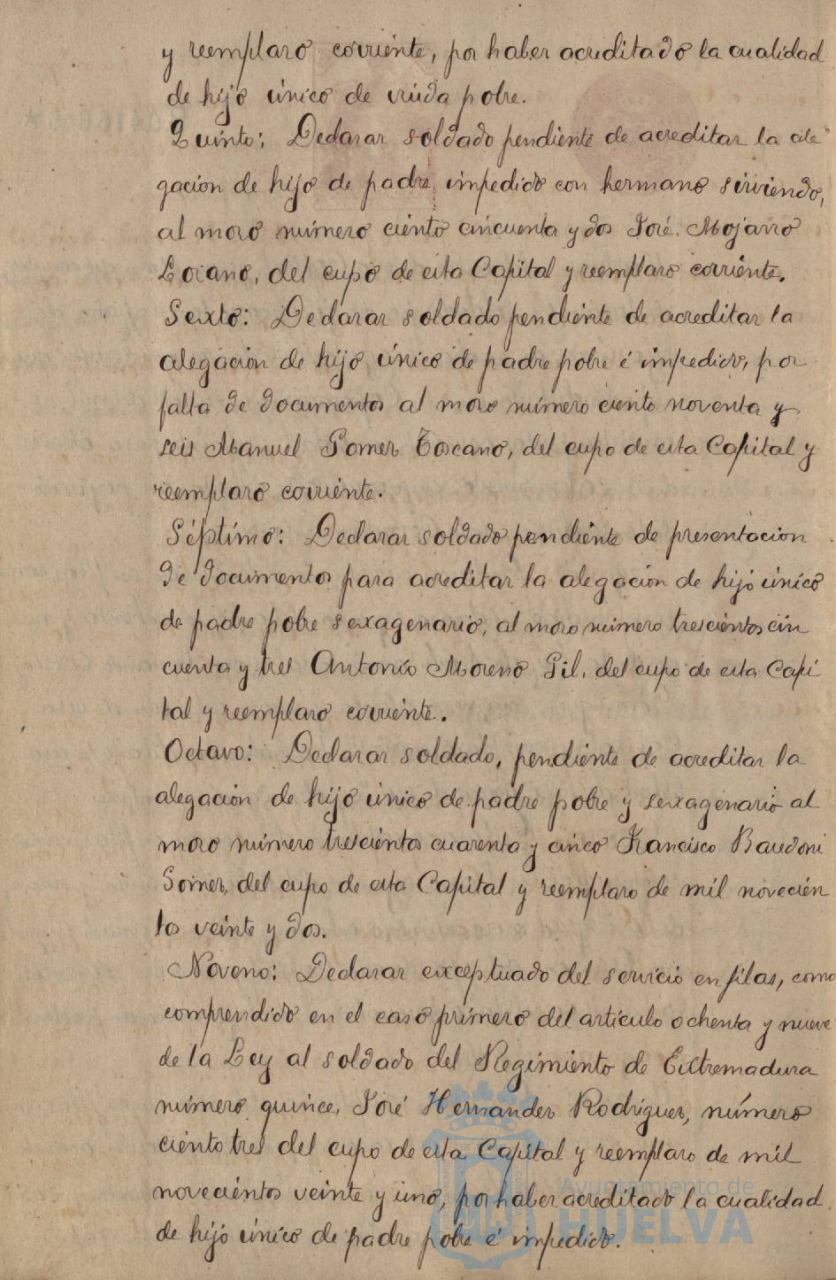 y reemplazo corriente, por haber acreditado la cualidad
de hijo único de viuda pobre.
Quinto: Declarar soldado pendiente de acreditar la ale
gacion de hijo de padre impedido con hermano sirviendo,
al mozo número ciento cincuenta y dos José Mojarro
Lozano, del cupo de esta Capital y reemplazo corriente.
Sexto: Declarar soldado pendiente de acreditar la
alegación de hijo único de padre pobre é impedido, por
falta de documentos al mozo número ciento noventa y
seis Manuel Gomez Toscano, del cupo de esta Capital y
reemplazo corriente.
Séptimo: Declarar soldado pendiente de presentacion
de documentos para acreditar la alegación de hijo único
de padre pobre sexagenario, al mozo número trescientos cin
cuenta y tres Antonio Moreno Gil, del cupo de esta Capi
tal y reemplazo corriente.
Octavo: Declarar soldado, pendiente de acreditar la
alegación de hijo único de padre pobre y sexagenario al
mozo número trescientos cuarenta y cinco Francisco Baudoni
Gomez, del cupo de esta Capital y reemplazo de mil novecien
tos veinte y dos.
Noveno: Declarar exceptuado del servicio en filas, como
comprendido en el caso primero del artículo ochenta y nueve
de la Ley al soldado del Regimiento de Extremadura
número quince, José Hernandez Rodríguez, número
ciento tres del cupo de esta Capital y reemplazo de mil
novecientos veinte y uno, por haber acreditado la cualidad
de hijo único de padre pobre é impedido.
Ayuntamiento de
HUELVA